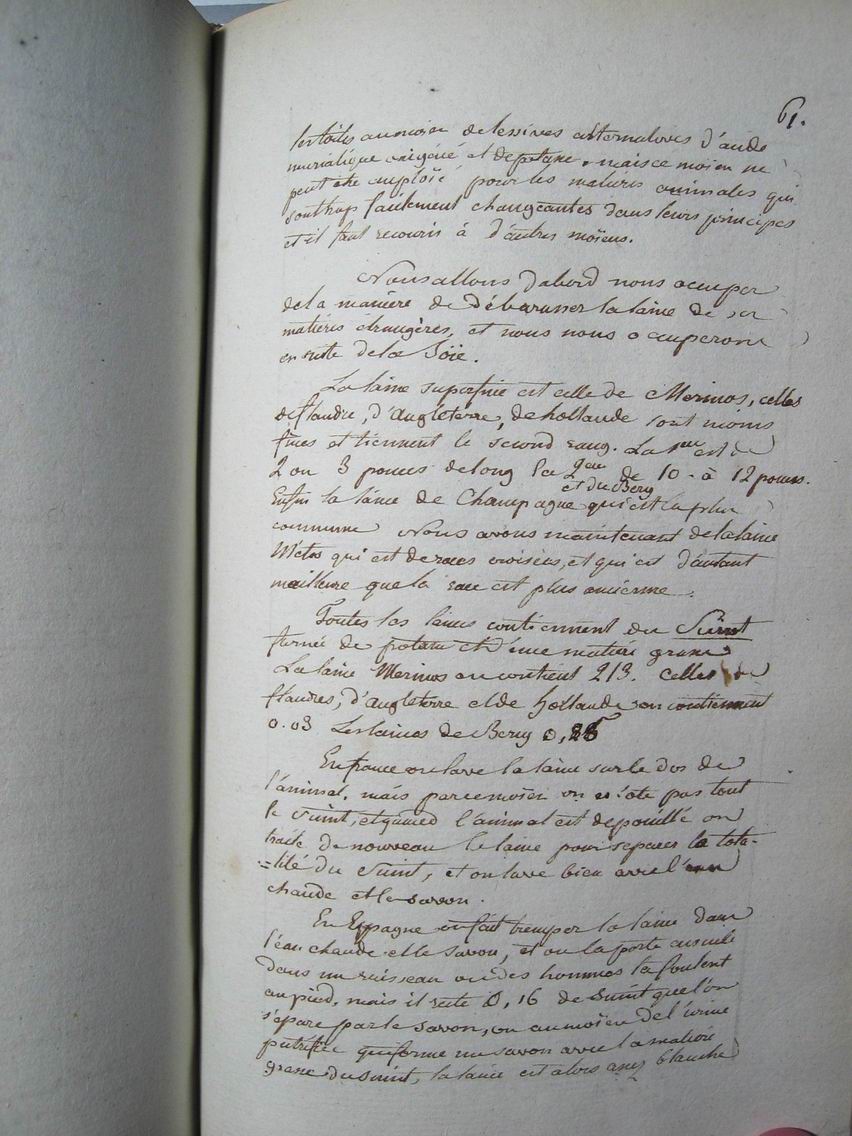 61.
les toiles au moien de lessives alternatives d'acide
muriatique oxigéné et de potasse, mais ce moien ne
peut etre emploïé pour les matieres animales qui
sont trop facilement changeantes dans leurs principes
et il faut recourir à d'autres moïens.
Nous allons d'abord nous occuper
de la maniere de débarasser la laine de ses
matieres étrangères, et nous nous occuperons
en suite de la Soie.
La laine superfine est celle de Merinos, celles
de flandre, d'Angleterre, de hollande sont moins
fines et tiennent le second rang. La 1ere est de
2 ou 3 pouces de long la 2eme de 10 à 12 pouces.
et du Bery
Enfin la laine de Champagne qui est la plus
commune Nous avons maintenant de la laine
Metis qui est de races croisées, et qui est d'autant
meilleure que la race est plus ancienne.
Toutes les laines contiennent du Suint
formé de potasse et d'une matiere grasse
La laine Merinos en contient 2/3. Celles de
flandres, d'Angleterre et de hollande en contiennent
0.03 Les laines de Berry 0,25
En france on lave la laine sur le dos de
l'animal, mais par ce moïen on n'ote pas tout
le Suint, et quand l'animal est depouillé on
traite de nouveau la laine pour separer la tota-
=lité du Suint, et on lave bien avec l'eau
chaude et le savon.
En Espagne on fait tremper la laine dans
l'eau chaude et le savon, et on la porte ensuite
dans un ruisseau ou des hommes la foulent
au pied, mais il reste 0,16 de Suint que l'on
s'epare par le savon, ou au moïen de l'urine
putrefiée qui forme un savon avec la matiere
grasse du suint, la laine est alors assez blanche